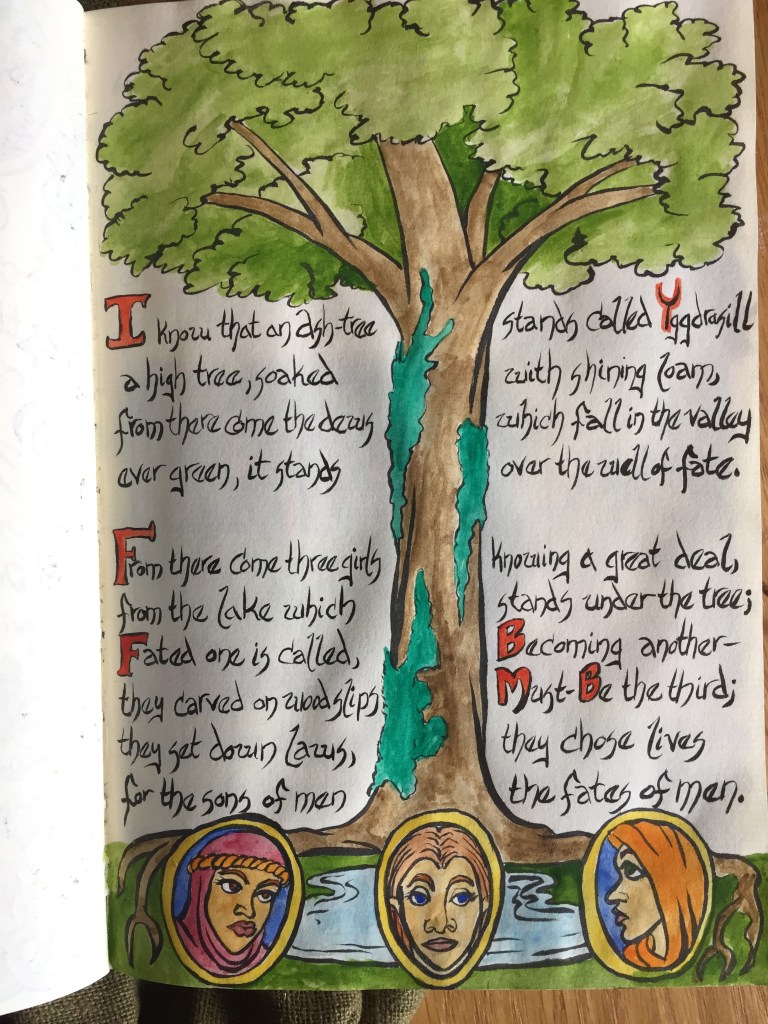 I know that an ash-tree stands called Yggdrasill
a high tree, soaked with shining loam,
from there come the dews which fall in the valley
ever green, it stands over the well of fate.
From there come three girls knowing a great deal,
from the lake which stands under the tree;
Fated one is called, Becoming another-
they carved on wood slips Must-Be the third;
they set down laws, they chose lives
for the sons of men the fates of men.